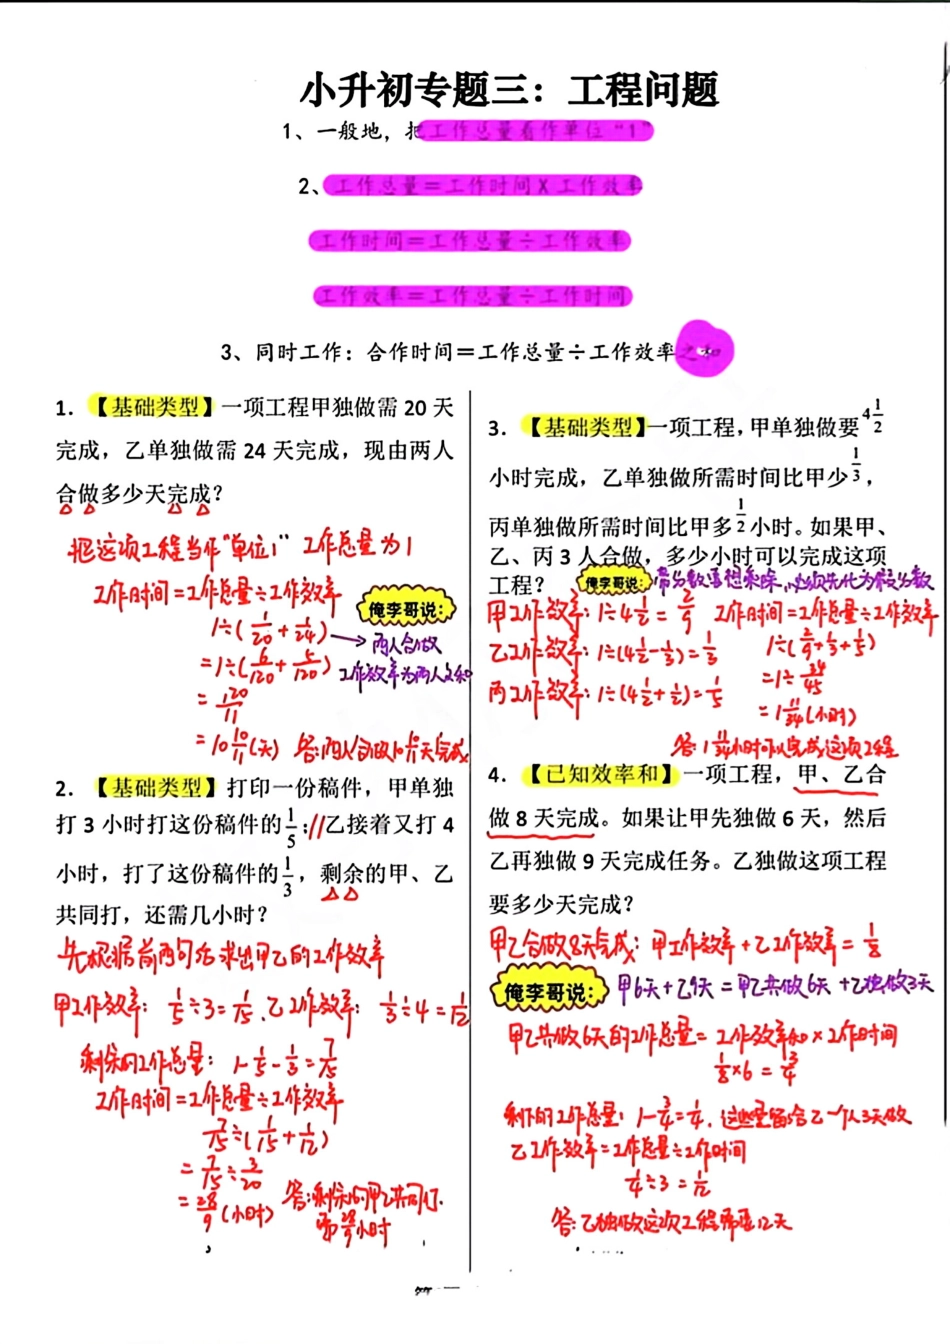 小升初专题三：工程问题
1、一般地，把工作总量看作单位“1”
2、工作总量＝工作时间×工作效率
工作时间＝工作总量÷工作效率
工作效率＝工作总量÷工作时间
3、同时工作：合作时间＝工作总量÷工作效率之和
1. 【基础类型】一项工程甲独做需 20 天
完成，乙单独做需 24 天完成，现由两人
合做多少天完成？
把这项工程当作“单位1” 工作总量为1
工作时间=工作总量÷工作效率
俺李哥说：
1÷(1/20+1/24)
→两人合做
=1÷(6/120+5/120)
工作效率为两人之和
=120/11
=10 10/11(天) 答:两人合做10 10/11天完成
2. 【基础类型】打印一份稿件，甲单独
打 3 小时打这份稿件的1/5；//乙接着又打 4
小时，打了这份稿件的1/3，剩余的甲、乙
共同打，还需几小时？
先根据前两句话求出甲乙的工作效率
甲工作效率：1/5÷3=1/15、乙工作效率：1/3÷4=1/12
剩余的工作总量：1-1/5-1/3=7/15
工作时间=工作总量÷工作效率
7/15÷(1/15+1/12)
=7/15÷3/20
=28/9(小时) 答:剩余的甲乙共同打.
需28/9小时
3. 【基础类型】一项工程，甲单独做要4 1/2
小时完成，乙单独做所需时间比甲少1/3，
丙单独做所需时间比甲多1/2小时。如果甲、
乙、丙 3 人合做，多少小时可以完成这项
工程？ 俺李哥说：带分数要想乘除，必须先化为假分数
甲工作效率：1÷4 1/2=2/9 工作时间=工作总量÷工作效率
乙工作效率：1÷(4 1/2-1/3)=1/3 1÷(2/9+1/3+1/5)
丙工作效率：1÷(4 1/2+1/2)=1/5 =1÷34/45
=1 11/34(小时)
答：1 11/34小时可以完成这项工程
4. 【已知效率和】一项工程，甲、乙合
做 8 天完成。如果让甲先独做 6 天，然后
乙再独做 9 天完成任务。乙独做这项工程
要多少天完成？
甲乙合做8天完成：甲工作效率+乙工作效率=1/8
俺李哥说：甲6天+乙9天=甲乙共做6天+乙独做3天
甲乙共做6天的工作总量=工作效率和×工作时间
1/8×6=3/4
剩下的工作总量：1-3/4=1/4，这些是留给乙一个人3天做
乙工作效率=工作总量÷工作时间
1/4÷3=1/12
答：乙独做这项工程需要12天